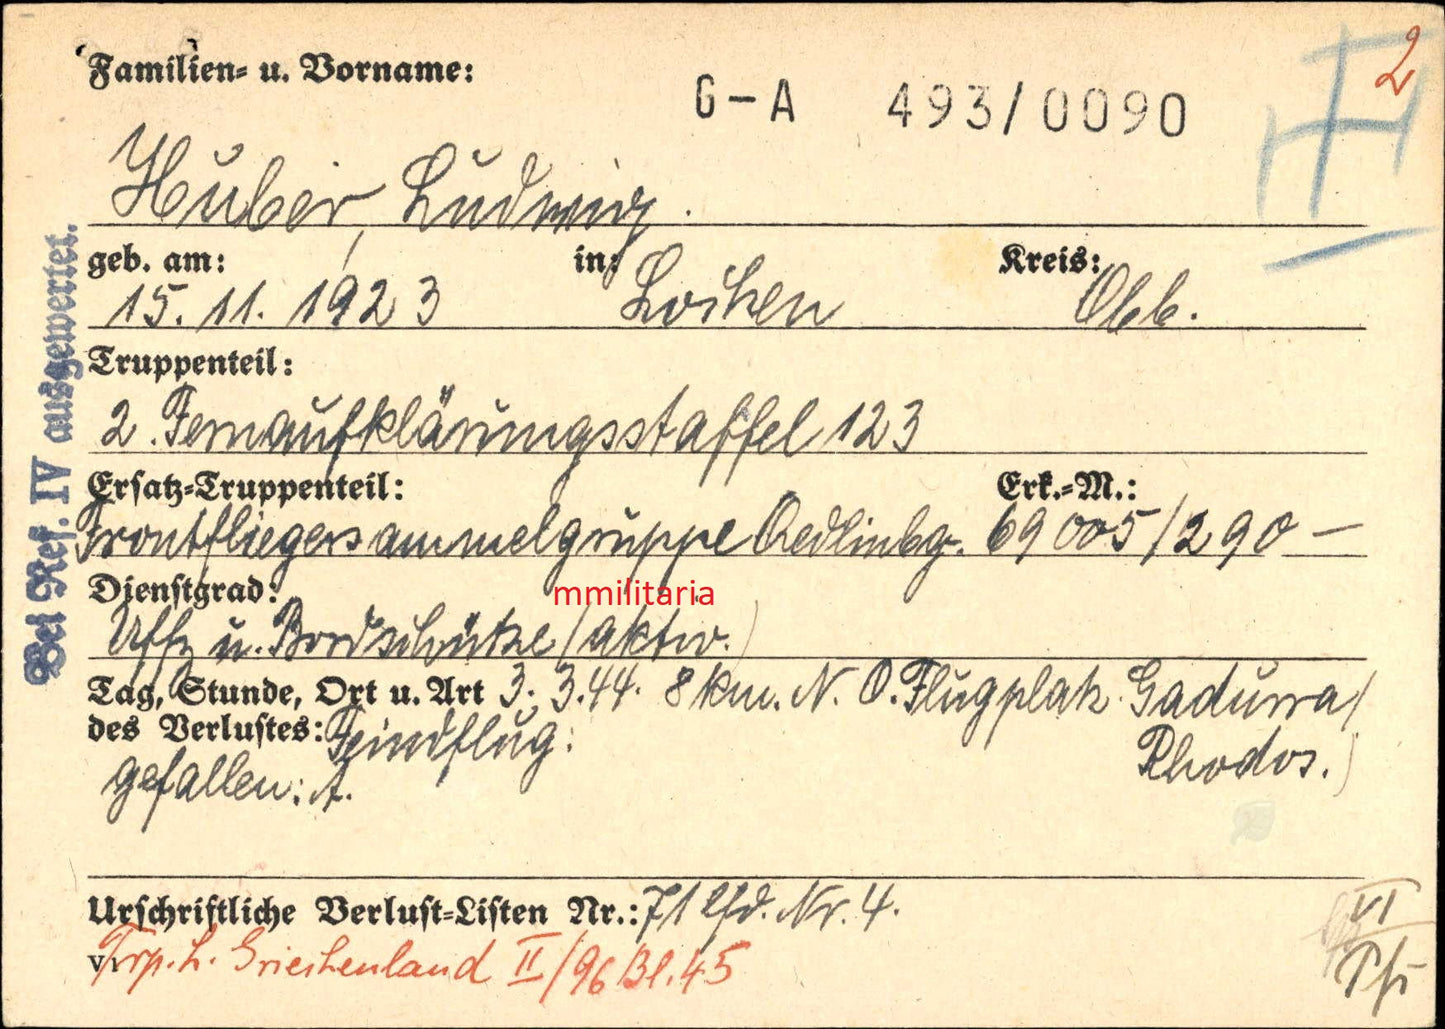 Familien= u. Vorname:
G-A 493/0090
2
Huber, Ludwig.
geb. am: in: Kreis:
15. 11. 1923 Lochen Obb.
Truppenteil:
2. Fernaufklärungsstaffel 123
Ersatz=Truppenteil: Erk.=M.:
Frontfliegersammelgruppe Qedlinbg. 69005/290 —
Dienstgrad:
mmilitaria
Uffz u. Bordschütze (aktiv.)
Tag, Stunde, Ort u. Art 3. 3.44. 8 km. N. O. Flugplatz Gadurra/
des Verlustes: Feindflug: Rhodos.)
gefallen: A.
Urschriftliche Verlust=Listen Nr.: 71 lfd. Nr. 4.
Trp. L. Griechenland II/96 Bl. 45
VI
Bei Ref. IV ausgewertet.